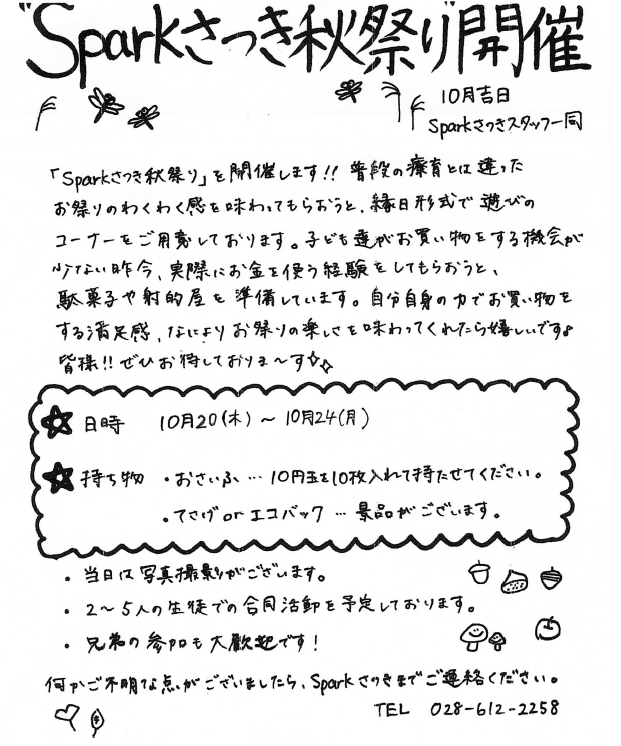 "Sparkさつき秋祭り"開催
10月吉日
Sparkさつきスタッフ一同
「Sparkさつき秋祭り」を開催します!! 普段の療育とは違った
お祭りのわくわく感を味わってもらおうと、縁日形式で遊びの
コーナーをご用意しております。子ども達がお買い物をする機会が
少ない昨今、実際にお金を使う経験をしてもらおうと、
駄菓子や射的屋を準備しています。自分自身の力でお買い物を
する満足感、なによりお祭りの楽しさを味わってくれたら嬉しいです。
皆様!! ぜひお待しておりま〜す☆☆
☆ 日時 10月20(木)〜10月24(月)
☆ 持ち物 ・おさいふ…10円玉を10枚入れて持たせてください。
・てさげorエコバック…景品がございます。
・当日は写真撮影がございます。
・2〜5人の生徒での合同活動を予定しております。
・兄弟の参加も大歓迎です!
何かご不明な点がございましたら、Sparkさつきまでご連絡ください。
TEL 028-612-2258